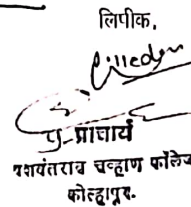 लिपीक,
प्र-प्राचार्य
यशवंतराव चव्हाण कॉलेज
कोल्हापूर.